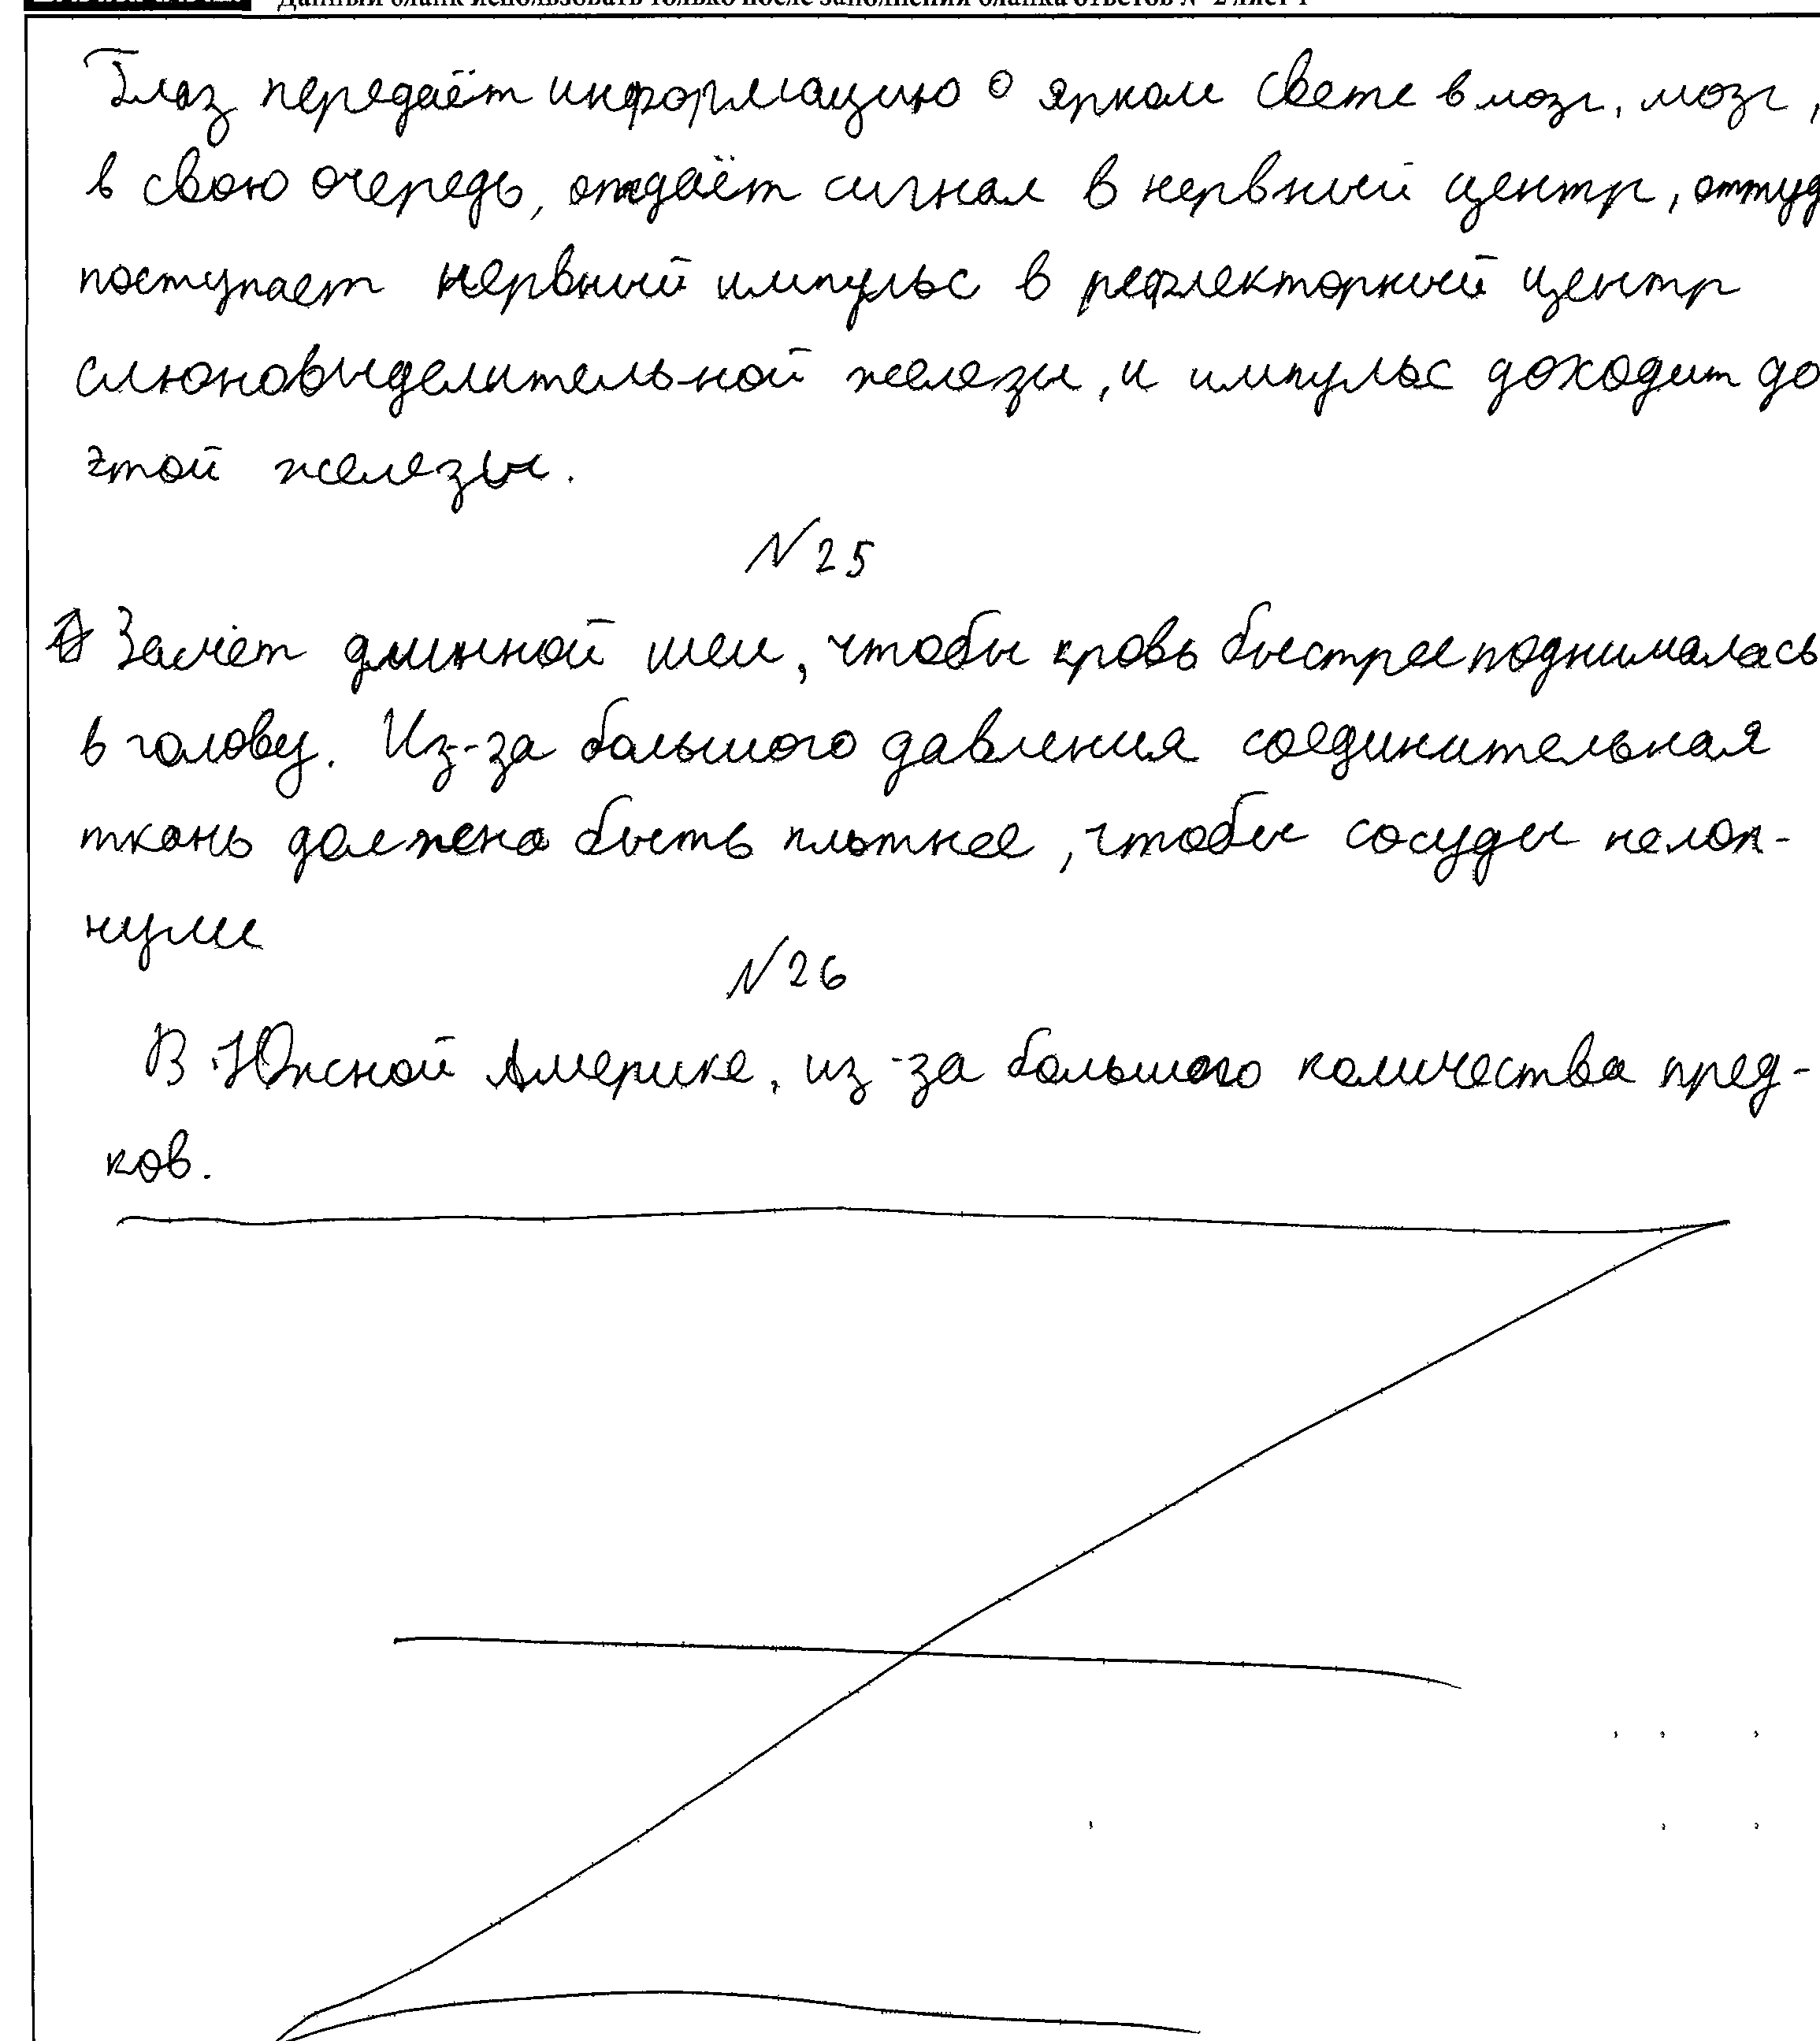 Данный бланк использовать только после заполнения бланка ответов № 2 лист 1
Глаз передаёт информацию о ярком свете в мозг, мозг,
в свою очередь, отдаёт сигнал в нервный центр, оттуд
поступает нервный импульс в рефлекторный центр
слюновыделительной железы, и импульс доходит до
этой железы.
N 25
Зачёт длинной шеи, чтобы кровь быстрее поднималась
в голову. Из-за большого давления соединительная
ткань должна быть плотнее, чтобы сосуды не лоп-
нули
N 26
В Южной Америке, из-за большого количества пред-
ков.